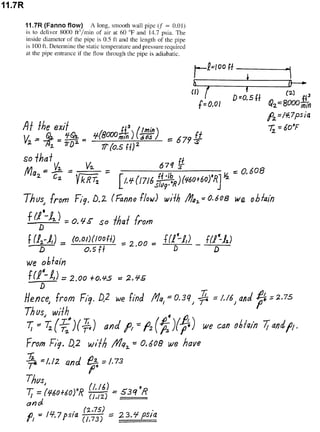 11.7R
11.7R (Fanno flow) A long, smooth wall pipe (f = 0.01)
is to deliver 8000 ft³/min of air at 60 °F and 14.7 psia. The
inside diameter of the pipe is 0.5 ft and the length of the pipe
is 100 ft. Determine the static temperature and pressure required
at the pipe entrance if the flow through the pipe is adiabatic.
ℓ=100 ft
(1) (2)
f=0.01 D=0.5ft Q₂=8000 ft³/min
p₂=14.7psia
T₂=60°F
At the exit
V₂ = Q₂/A₂ = 4Q₂/πD² = 4(8000 ft³/min)(1min/60s)/π(0.5 ft)² = 679 ft/s
so that
Ma₂ = V₂/c₂ = V₂/√kRT₂ = 679 ft/s / [1.4(1716 ft·lb/slug·°R)(460+60)°R]^½ = 0.608
Thus, from Fig. D.2 (Fanno flow) with Ma₂=0.608 we obtain
f(ℓ*-ℓ₂)/D = 0.45 so that from
f(ℓ₂-ℓ₁)/D = (0.01)(100ft)/0.5ft = 2.00 = f(ℓ*-ℓ₁)/D - f(ℓ*-ℓ₂)/D
we obtain
f(ℓ*-ℓ₁)/D = 2.00 + 0.45 = 2.45
Hence, from Fig. D.2 we find Ma₁ = 0.39, T₁/T* = 1.16, and p₁/p* = 2.75
Thus, with
T₁ = T₂(T*/T₂)(T₁/T*) and p₁ = p₂(p*/p₂)(p₁/p*) we can obtain T₁ and p₁.
From Fig. D.2 with Ma₂ = 0.608 we have
T₂/T* = 1.12 and p₂/p* = 1.73
Thus,
T₁ = (460+60)°R (1.16)/(1.12) = 539 °R
and
p₁ = 14.7 psia (2.75)/(1.73) = 23.4 psia